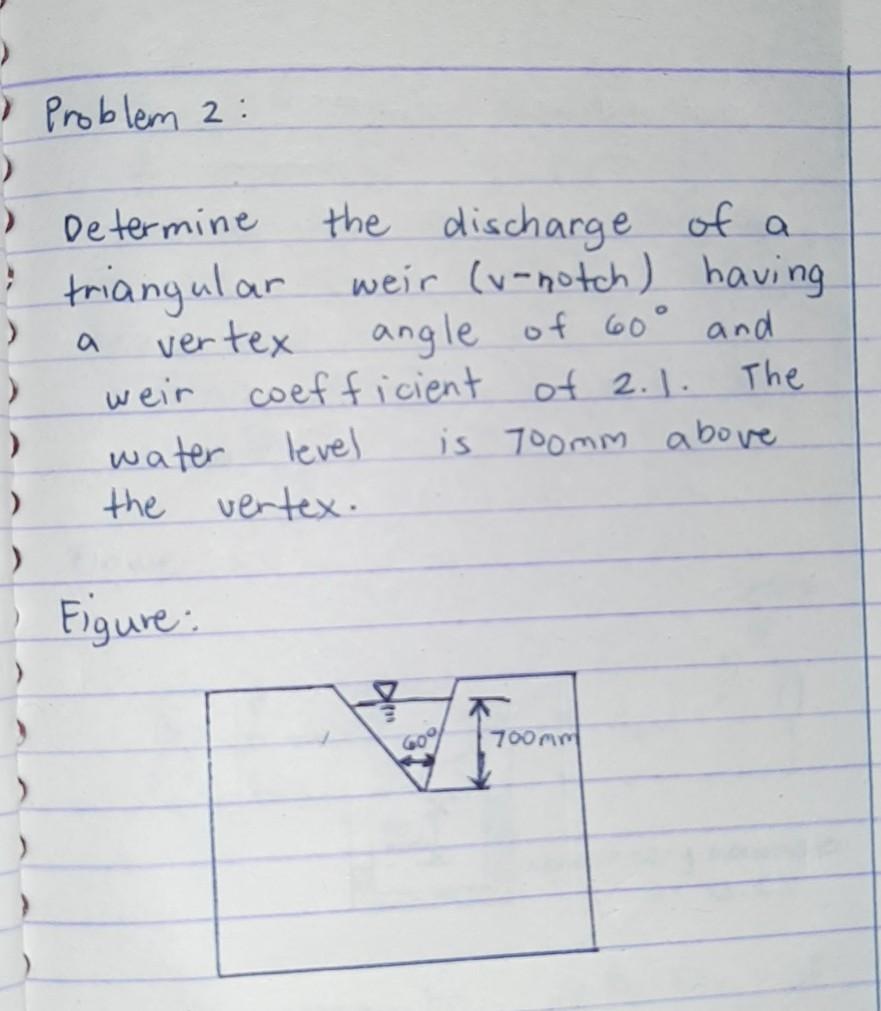 Problem 2:
Determine the discharge of a
triangular weir (v-notch) having
a vertex angle of 60° and
weir coefficient of 2.1. The
water level is 700mm above
the vertex.
Figure:
60°
700mm